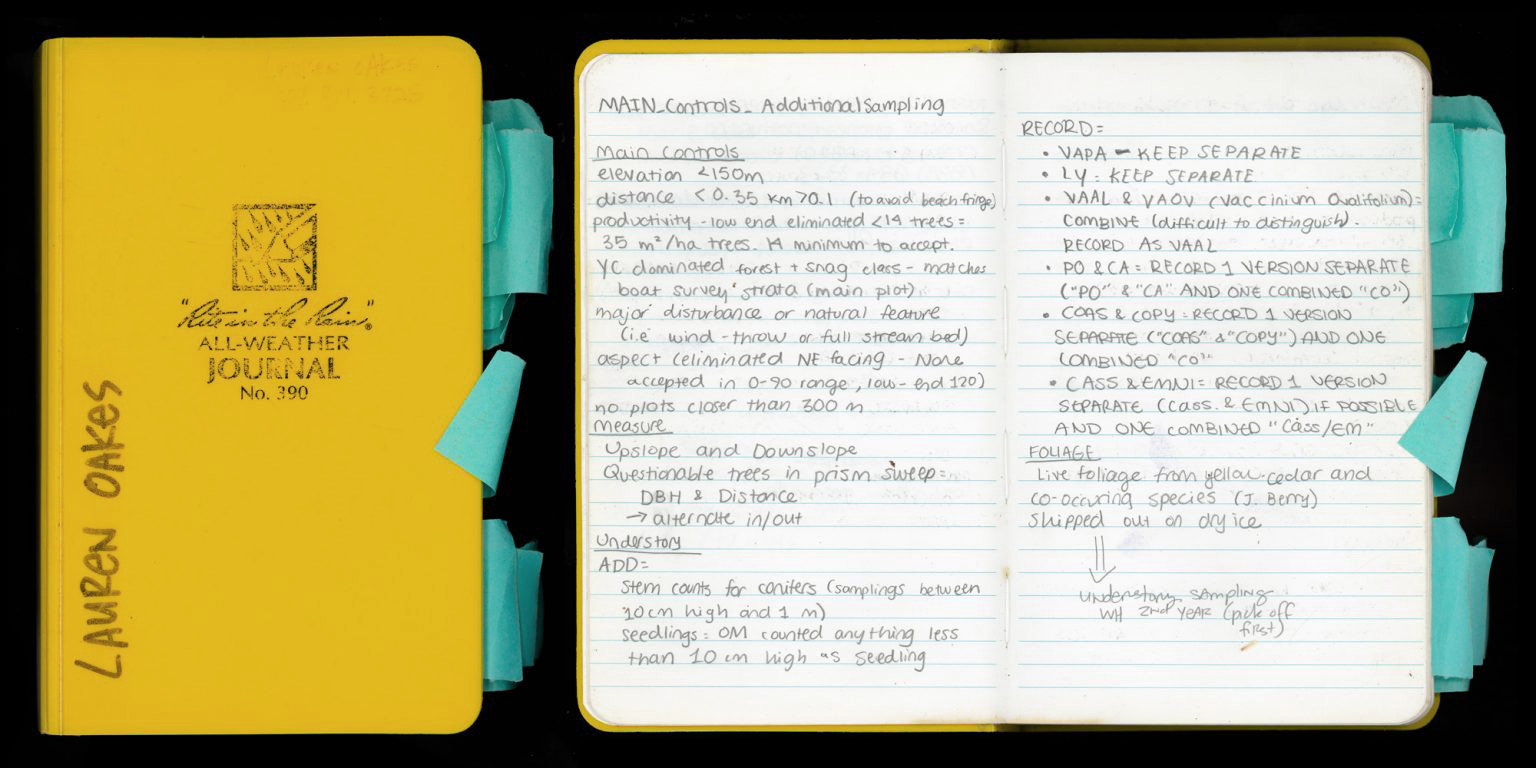 LAUREN OAKES
"Rite in the Rain"®
ALL-WEATHER
JOURNAL
No. 390
LAUREN OAKES
MAIN_Controls_ Additional Sampling
Main Controls
elevation <150m
distance < 0.35 km >0.1 (to avoid beach fringe)
productivity - low end eliminated <14 trees =
35 m²/ha trees. 14 minimum to accept.
YC dominated forest + snag class - matches
boat survey strata (main plot)
major disturbance or natural feature
(i.e wind-throw or full stream bed)
aspect (eliminated NE facing - None
accepted in 0-90 range, low-end 120)
no plots closer than 300 m
Measure
Upslope and Downslope
Questionable trees in prism sweep =
DBH & Distance
→ alternate in/out
Understory
ADD =
Stem counts for conifers (samplings between
10cm high and 1 m)
seedlings = OM counted anything less
than 10 cm high as seedling
RECORD =
• VAPA - KEEP SEPARATE
• LY : KEEP SEPARATE
• VAAL & VAOV (Vaccinium Ovalifolium) =
COMBINE (difficult to distinguish).
RECORD AS VAAL
• PO & CA = RECORD 1 VERSION SEPARATE
("PO" & "CA" AND ONE COMBINED "CO")
• COAS & COPY : RECORD 1 VERSION
SEPARATE ("COAS" & "COPY") AND ONE
COMBINED "CO"
• CASS & EMNI = RECORD 1 VERSION
SEPARATE (Cass. & EMNI) IF POSSIBLE
AND ONE COMBINED "Cass/EM"
FOLIAGE
Live foliage from yellow-cedar and
co-occuring species (J. Berry)
Shipped out on dry ice
understory sampling
WH 2nd YEAR (pick off
first)